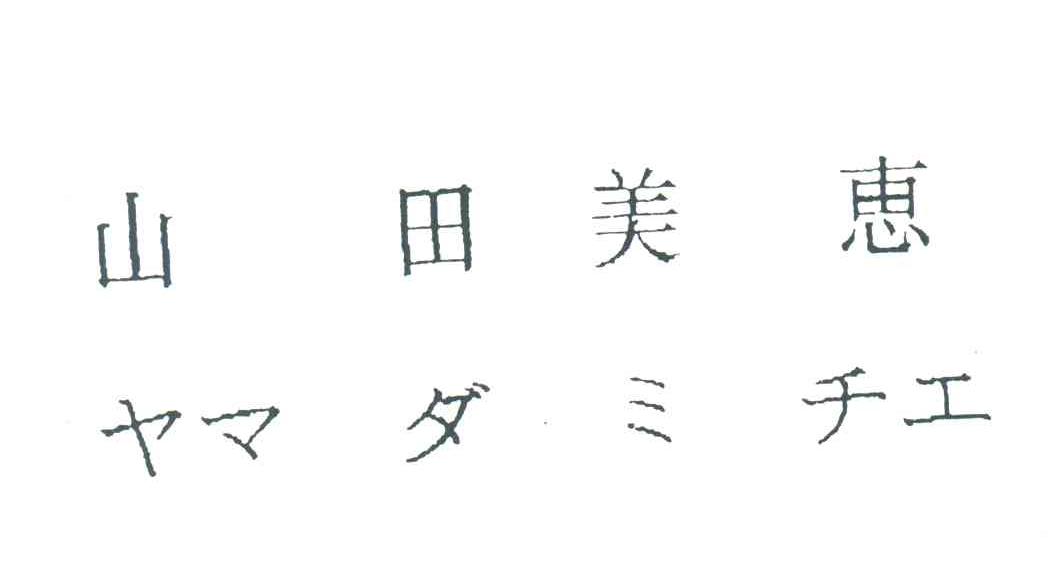 山田美恵
ヤマダミチエ